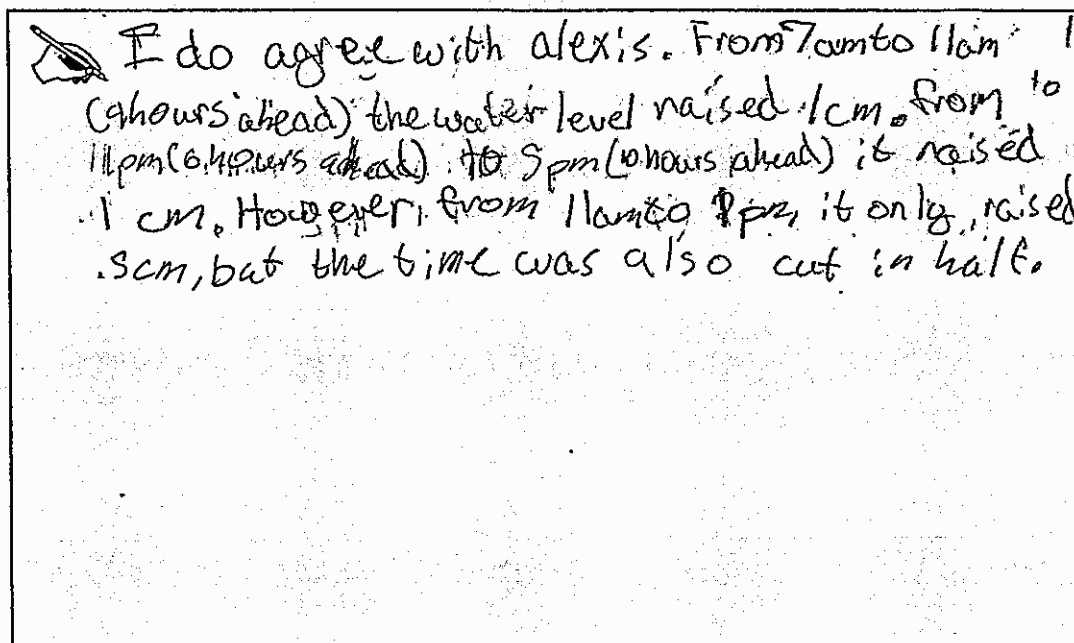 I do agree with alexis. From 7am to 11am
(4hours ahead) the water level raised 1cm. from to
1pm (6 hours ahead) to 5pm (10 hours ahead) it raised
1 cm. However, from 11am to 1pm, it only raised
.5cm, but the time was also cut in half.